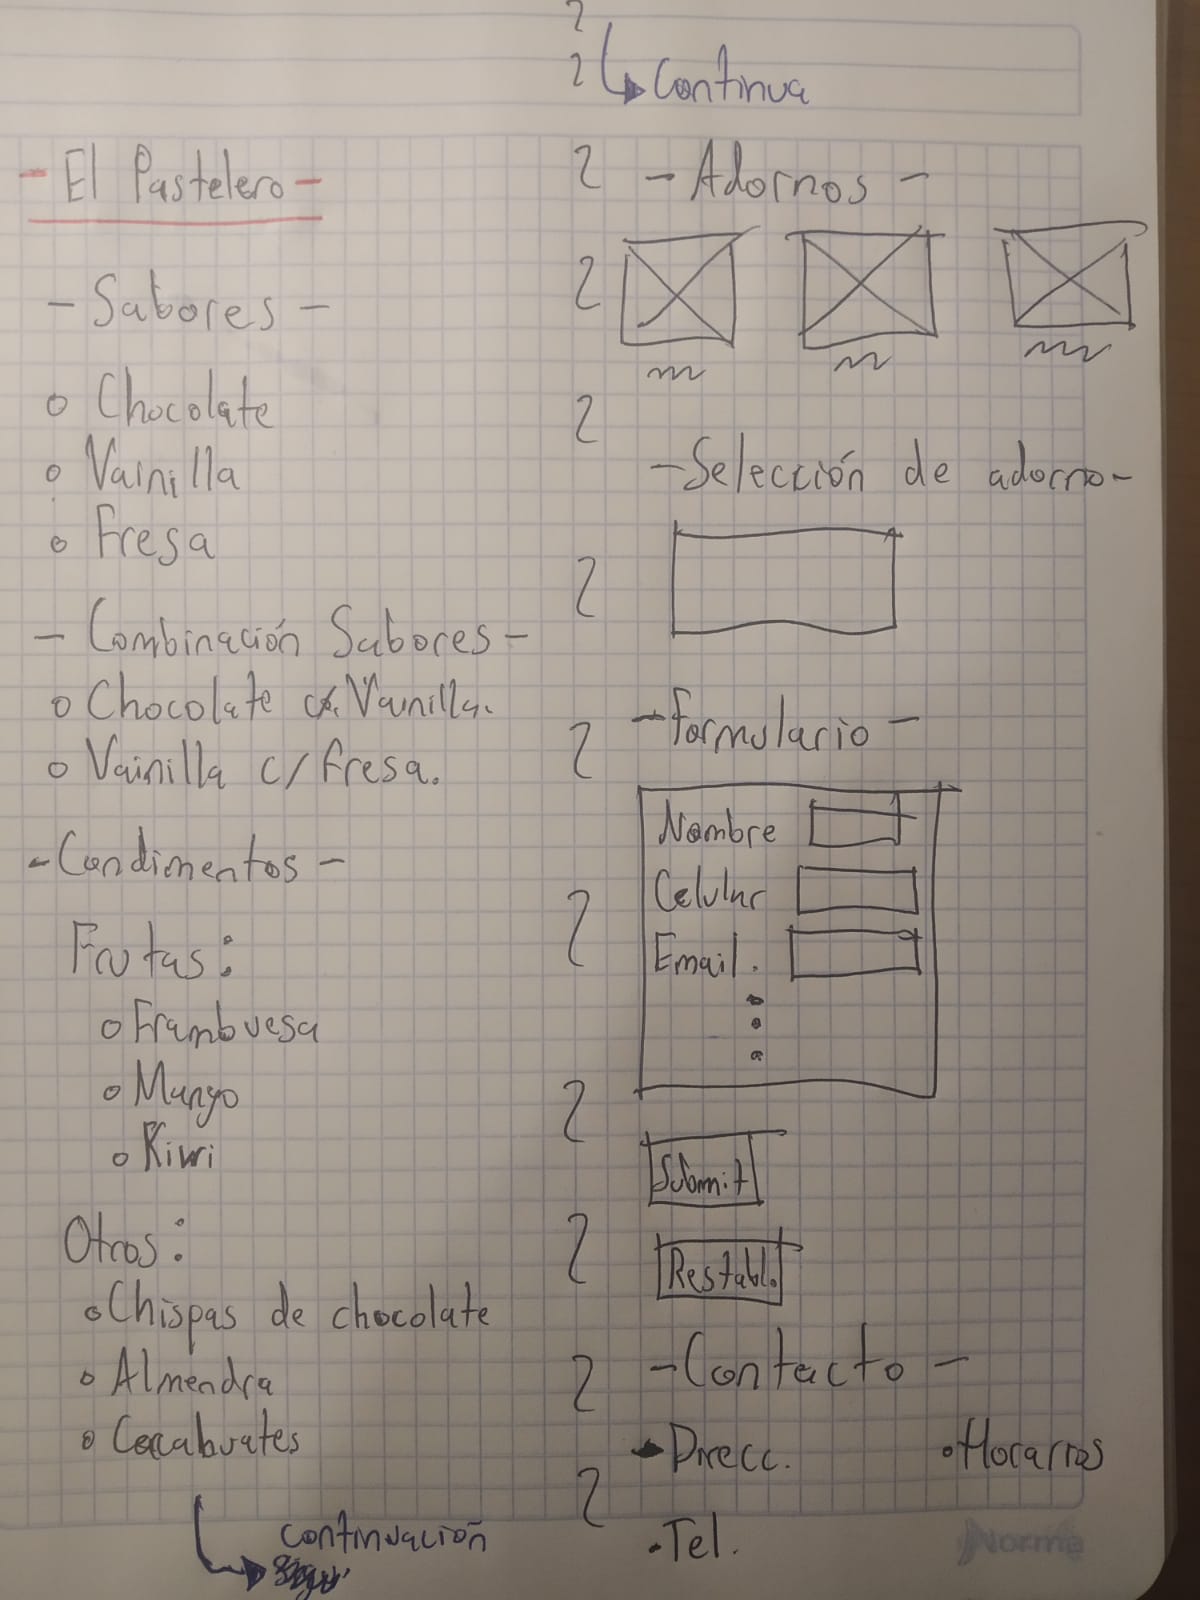 - El Pastelero -
- Sabores -
o Chocolate
o Vainilla
o Fresa
- Combinación Sabores -
o Chocolate c/ Vainilla.
o Vainilla c/ fresa.
- Condimentos -
Frutas:
o Frambuesa
o Mango
o Kiwi
Otros:
o Chispas de chocolate
o Almendra
o Cacahuates
continuación
Continua
- Adornos -
- Selección de adorno -
- formulario -
Nombre
Celular
Email.
Submit
Restabl.
- Contacto -
• Direcc.
• Horarios
• Tel.
Norma